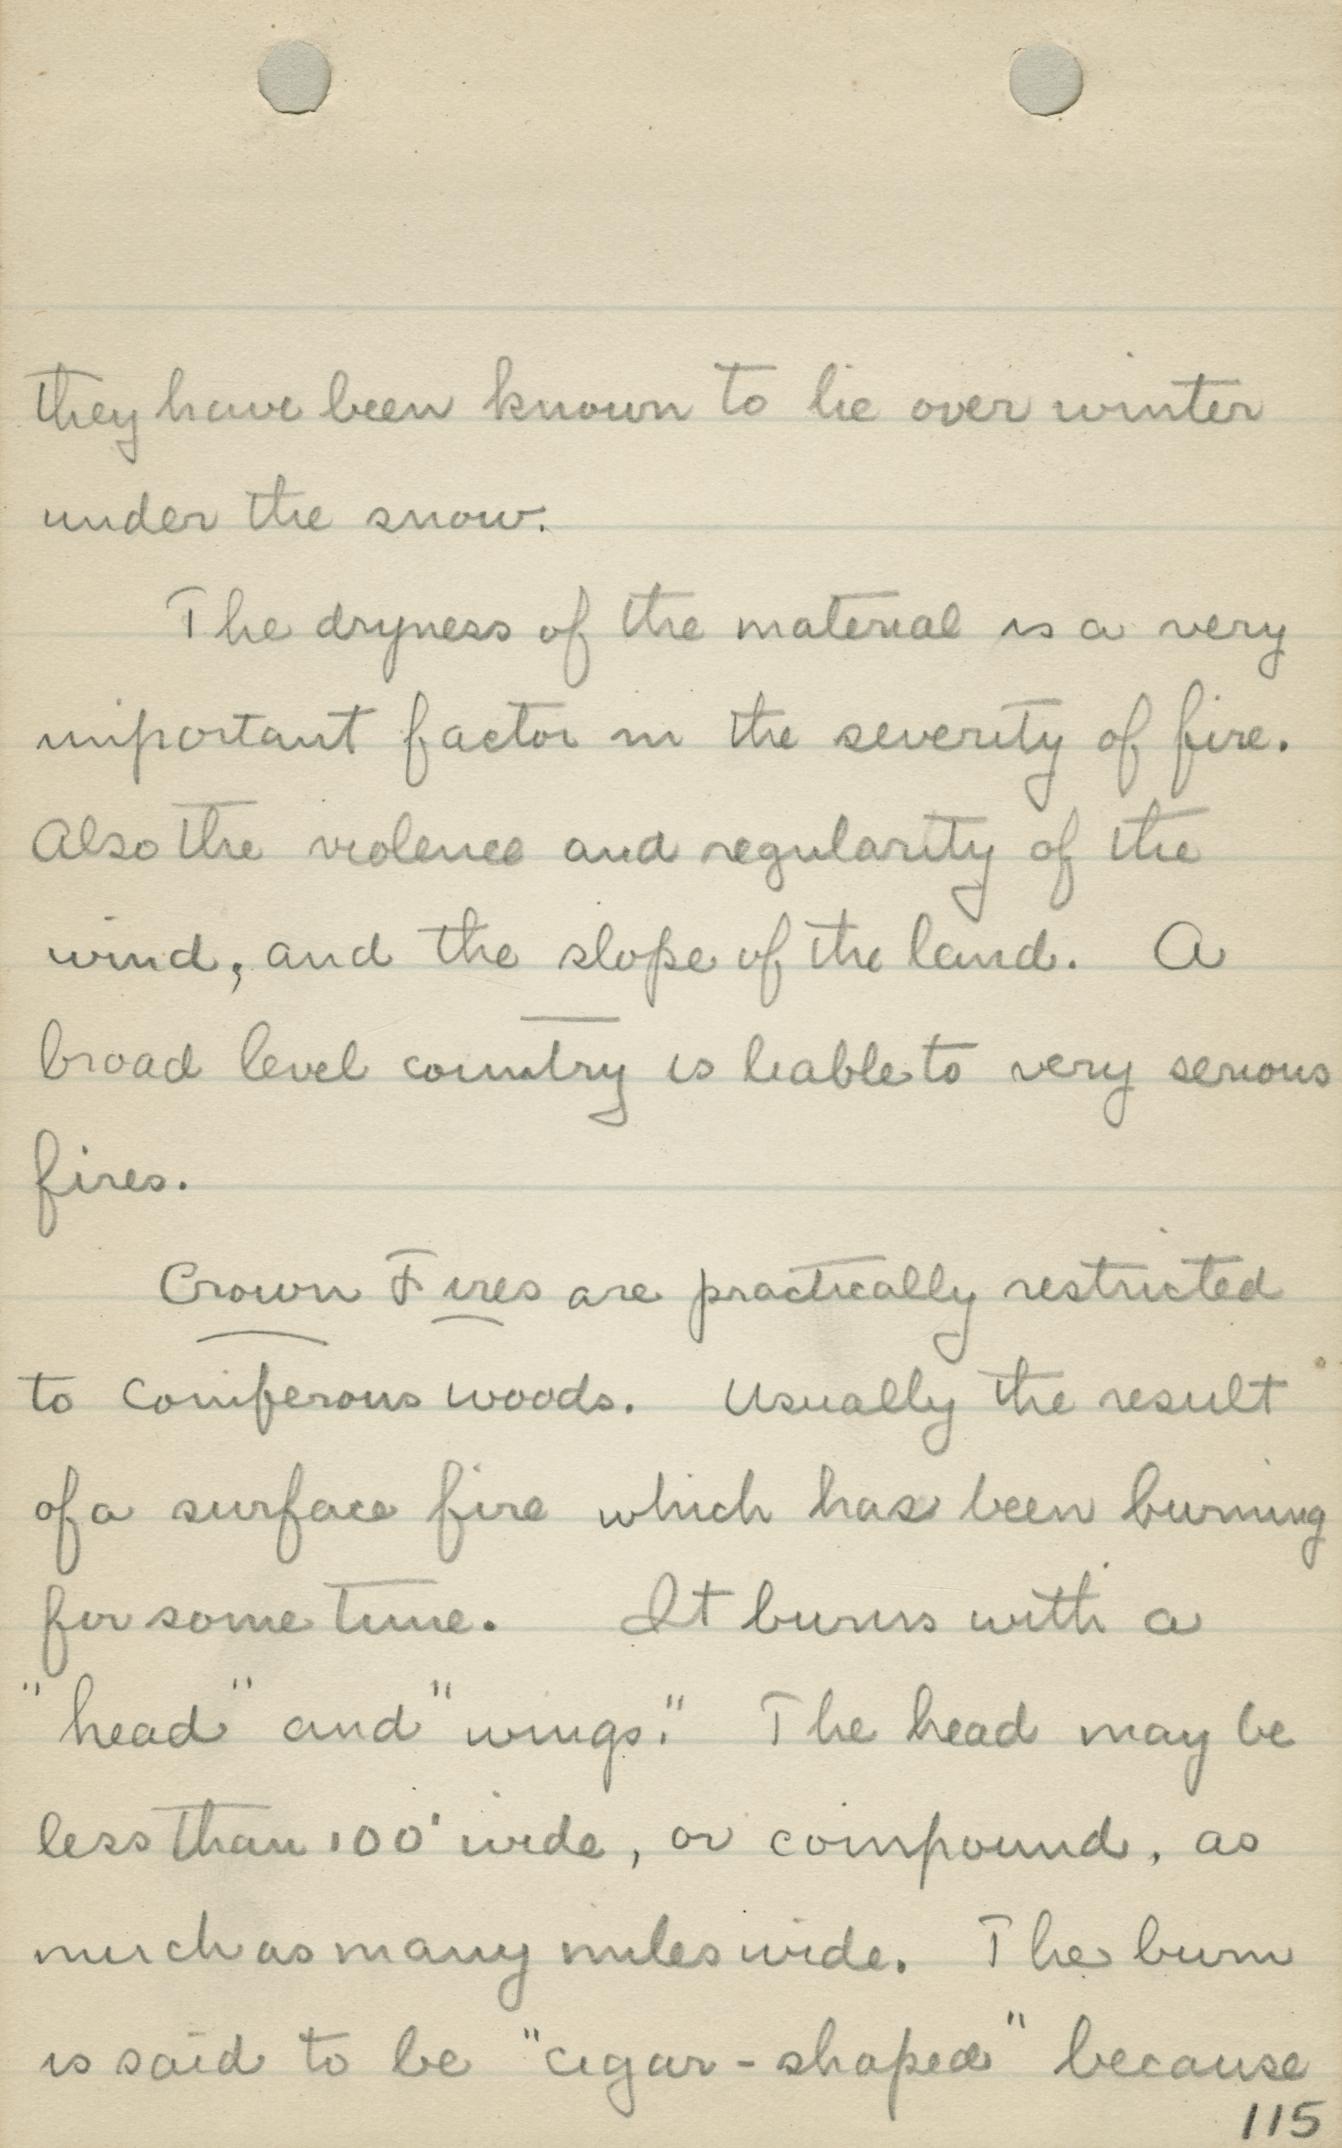 they have been known to lie over winter
under the snow.
The dryness of the material is a very
important factor in the severity of fire.
Also the violence and regularity of the
wind, and the slope of the land. A
broad level country is liable to very serious
fires.
Crown Fires are practically restricted
to coniferous woods. Usually the result
of a surface fire which has been burning
for some time. It burns with a
"head" and "wings." The head may be
less than 100' wide, or compound, as
much as many miles wide. The burn
is said to be "cigar-shaped" because
115